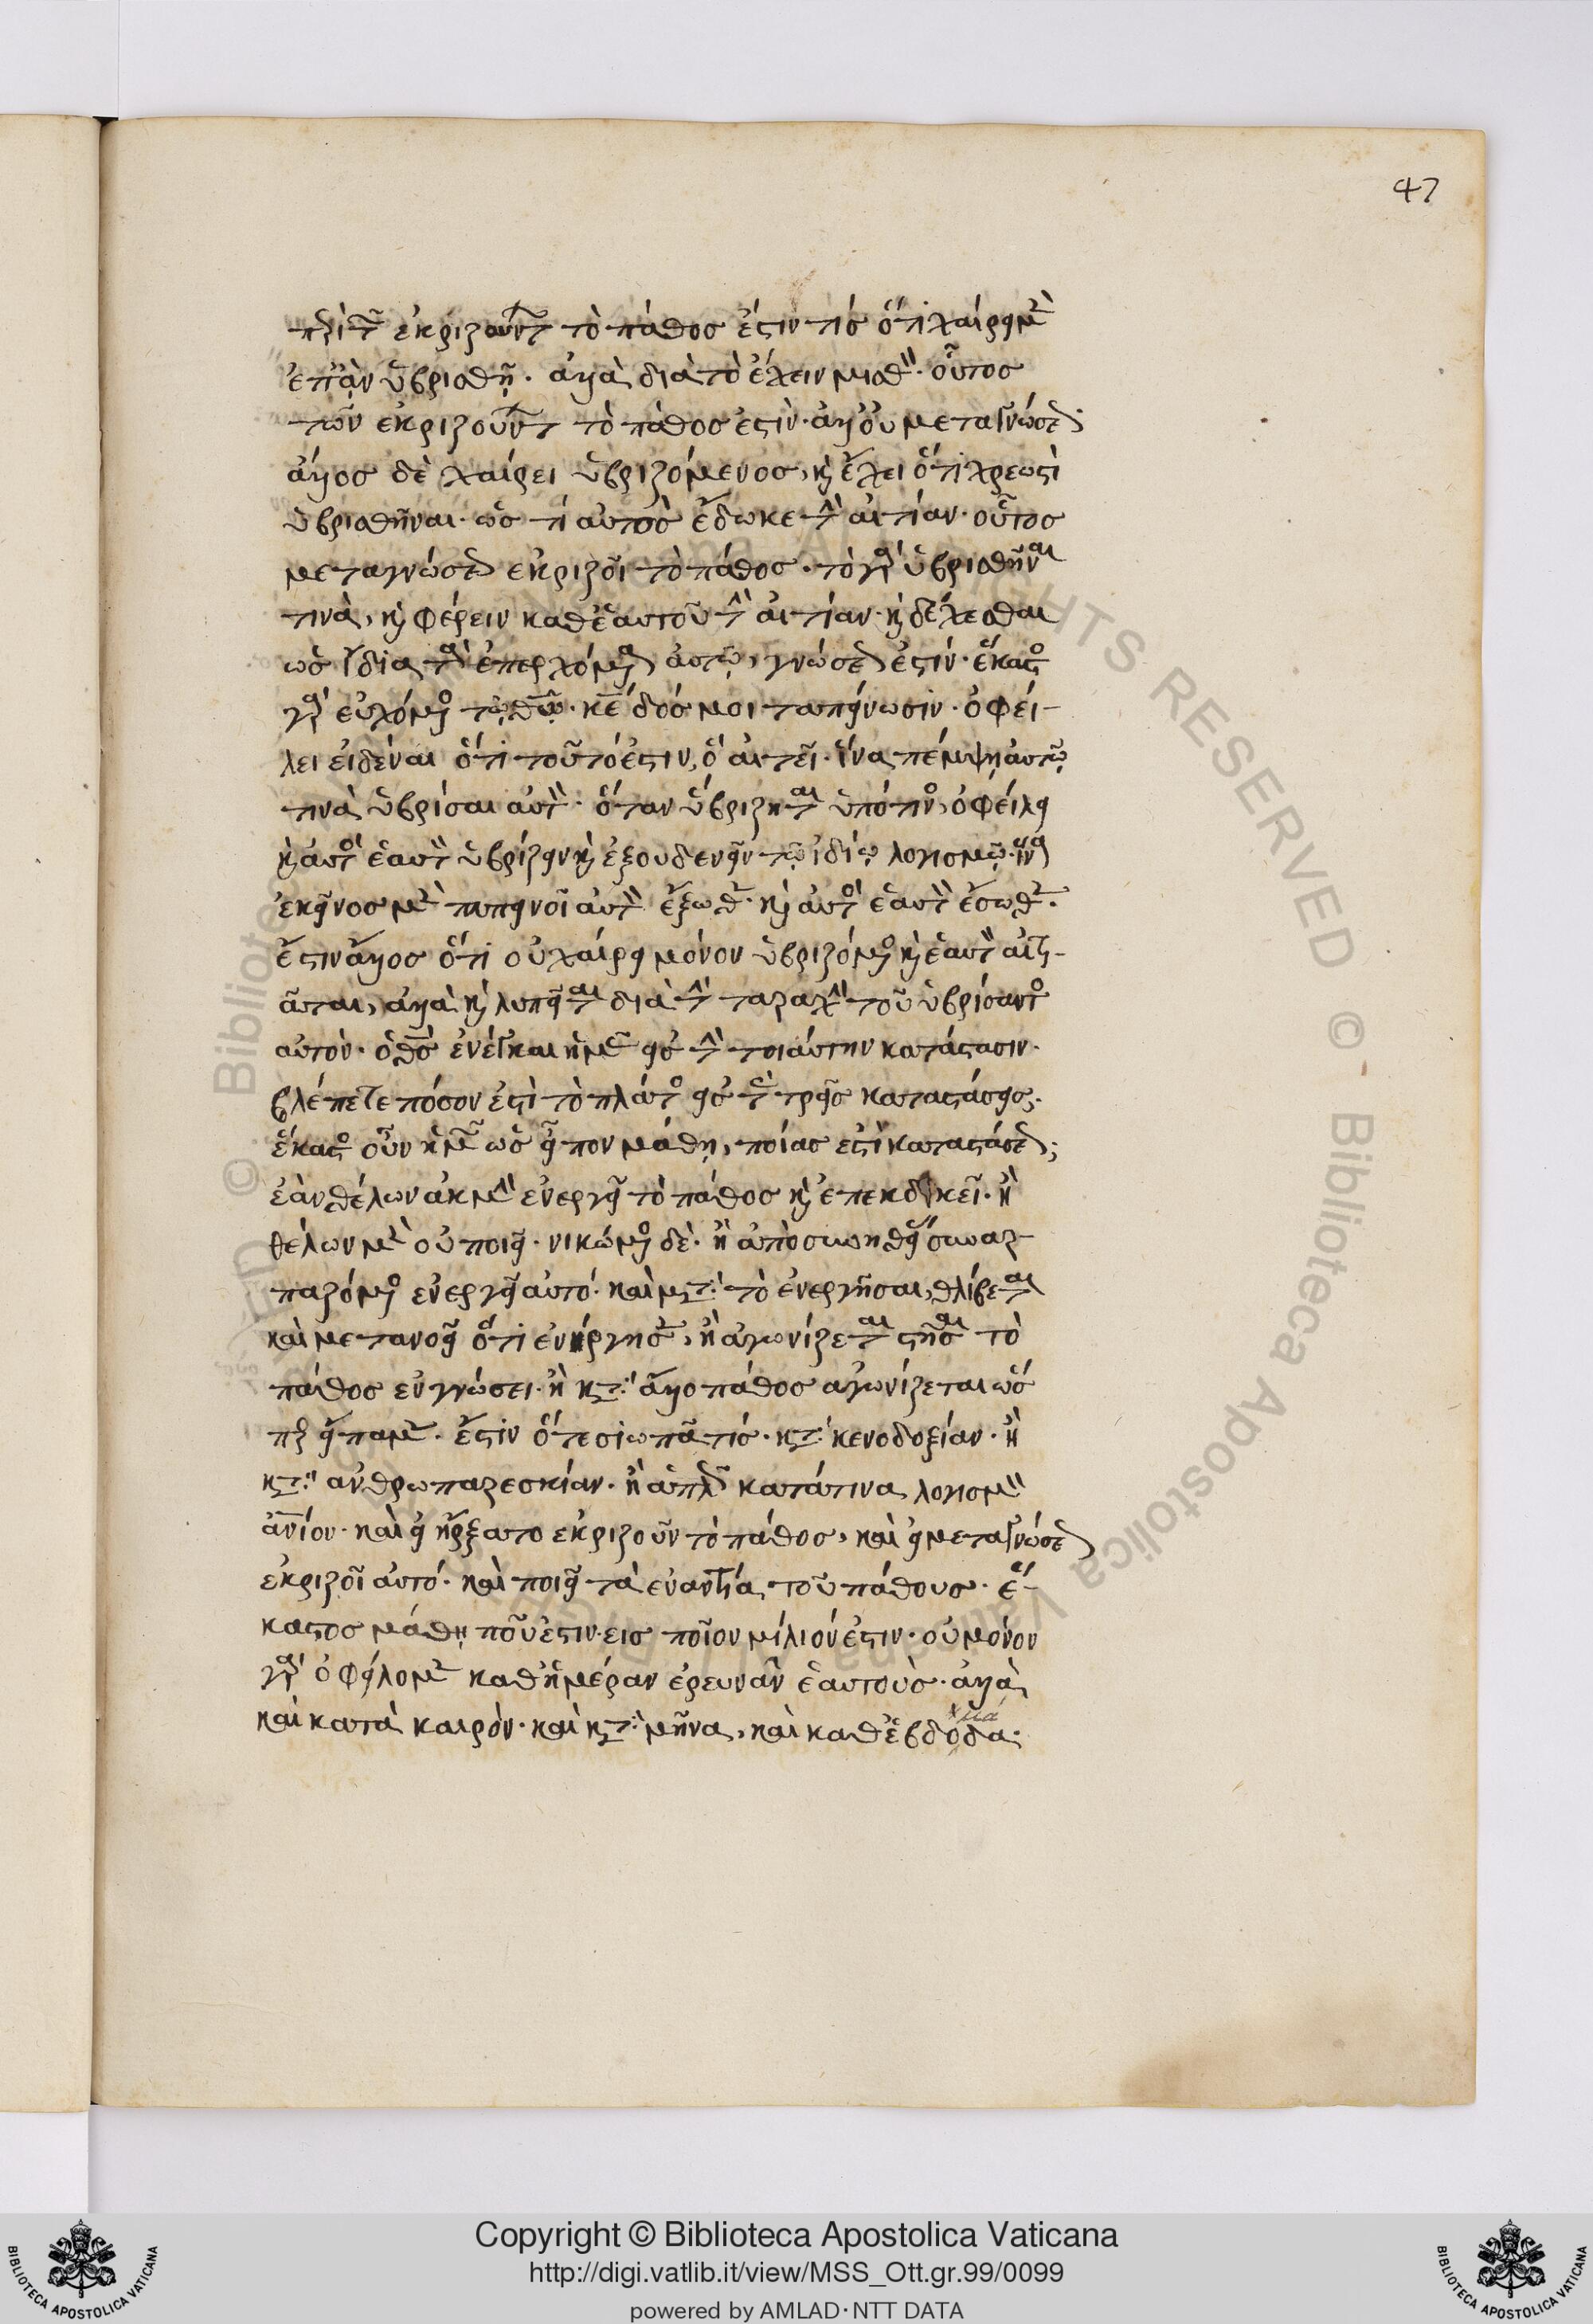 47
περὶ τῶν ἐκριζούντων τὸ πάθος ἐστίν τις ὅτι χαίρει μὲν
ἐπὰν ὑβρισθῇ· ἀλλὰ διὰ τὸ ἔχειν μισθόν· οὗτος
τῶν ἐκριζούντων τὸ πάθος ἐστίν· ἀλλ' οὐ μετὰ γνώσεως·
ἄλλος δὲ χαίρει ὑβριζόμενος, καὶ ἔχει ὅτι χρεωστεῖ
ὑβρισθῆναι· ὡς ὅτι αὐτὸς ἔδωκε τὴν αἰτίαν· οὗτος
μετὰ γνώσεως ἐκριζοῖ τὸ πάθος· τὸ γὰρ ὑβρισθῆναι
τινὰ, καὶ φέρειν καθ' ἑαυτοῦ τὴν αἰτίαν· καὶ δέχεσθαι
ὡς ἴδια τὰ ἐπερχόμενα αὐτῷ, γνώσεως ἐστίν· ἕκαστος
γὰρ εὐχόμενος τῷ θῷ· κε δός μοι ταπείνωσιν· ὀφεί-
λει εἰδέναι ὅτι τοῦτό ἐστιν, ὃ αἰτεῖ· ἵνα πέμψῃ αὐτῷ
τινὰ ὑβρίσαι αὐτόν· ὅταν ὑβρίζηται ὑπό τινος, ὀφείλει
καὶ αὐτὸς ἑαυτὸν ὑβρίζειν καὶ ἐξουδενεῖν τῷ ἰδίῳ λογισμῷ· ἵνα
ἐκεῖνος μὲν ταπεινοῖ αὐτὸν ἔξωθεν· καὶ αὐτὸς ἑαυτὸν ἔσωθεν·
ἔστιν ἄλλος ὅτι οὐ χαίρει μόνον ὑβριζόμενος καὶ ἑαυτὸν αἰτι-
ᾶται, ἀλλὰ καὶ λυπεῖται διὰ τὴν ταραχὴν τοῦ ὑβρίσαντος
αὐτόν· ὁ θς ἐνέγκαι ἡμᾶς εἰς τὴν τοιαύτην κατάστασιν·
βλέπετε πόσον ἐστὶ τὸ πλάτος εἰς τὰς τρεῖς καταστάσεις·
ἕκαστος οὖν ἡμῶν ὡς εἶπον μάθῃ, ποίας ἐστὶ καταστάσεως;
ἐὰν θέλων ἀκμὴν ἐνεργεῖ τὸ πάθος καὶ ἐπεκδικεῖ· ἢ
θέλων μὲν οὐ ποιεῖ· νικώμενος δὲ· ἢ ἀπὸ συνηθείας συναρ-
παζόμενος ἐνεργεῖ αὐτό· καὶ μετὰ τὸ ἐνεργῆσαι, θλίβεται
καὶ μετανοεῖ ὅτι ἐνήργησεν, ἢ ἀγωνίζεται στῆσαι τὸ
πάθος ἐν γνώσει· ἢ κατὰ ἄλλο πάθος ἀγωνίζεται ὥσ
περ εἴπαμεν· ἔστιν ὅτε σιωπᾶ τίς· κατὰ κενοδοξίαν· ἢ
κατὰ ἀνθρωπαρεσκίαν· ἢ ἁπλῶς κατά τινα λογισμὸν
ἀνίον· καὶ εἰ ἤρξατο ἐκριζοῦν τὸ πάθος, καὶ εἰ μετὰ γνώσεως
ἐκριζοῖ αὐτό· καὶ ποιεῖ τὰ ἐναντία τοῦ πάθους· ἕ-
καστος μάθῃ ποῦ ἐστιν· εἰς ποῖον μίλιόν ἐστιν· οὐ μόνον
γὰρ ὀφείλομεν καθ' ἡμέραν ἐρευνᾶν ἑαυτοὺς· ἀλλὰ
καὶ κατὰ καιρόν· καὶ κατὰ μῆνα, καὶ καθ' ἑβδοδα·
μά
© Biblioteca Apostolica Vaticana ALL RIGHTS RESERVED © Biblioteca Apostolica Vaticana ALL RIGHTS RESERVED
BIBLIOTECA APOSTOLICA VATICANA
Copyright © Biblioteca Apostolica Vaticana
http://digi.vatlib.it/view/MSS_Ott.gr.99/0099
powered by AMLAD·NTT DATA
BIBLIOTECA APOSTOLICA VATICANA